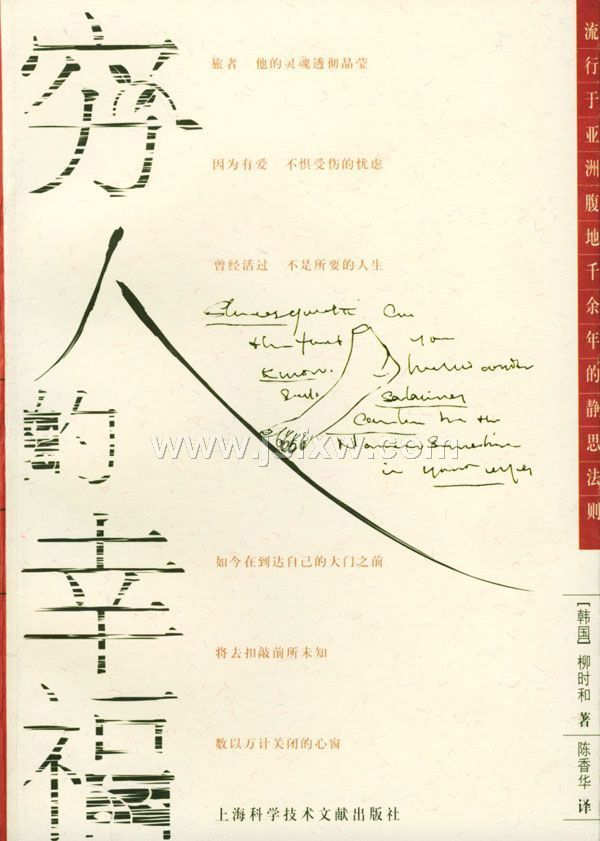 穷人的幸福
旅者 他的灵魂透彻晶莹
因为有爱 不惧受伤的忧虑
曾经活过 不是所要的人生
you
know.
in your eyes
如今在到达自己的大门之前
将去扣敲前所未知
数以万计关闭的心窗
上海科学技术文献出版社
流行于亚洲腹地千余年的静思法则
[韩国] 柳时和 著
陈香华 译